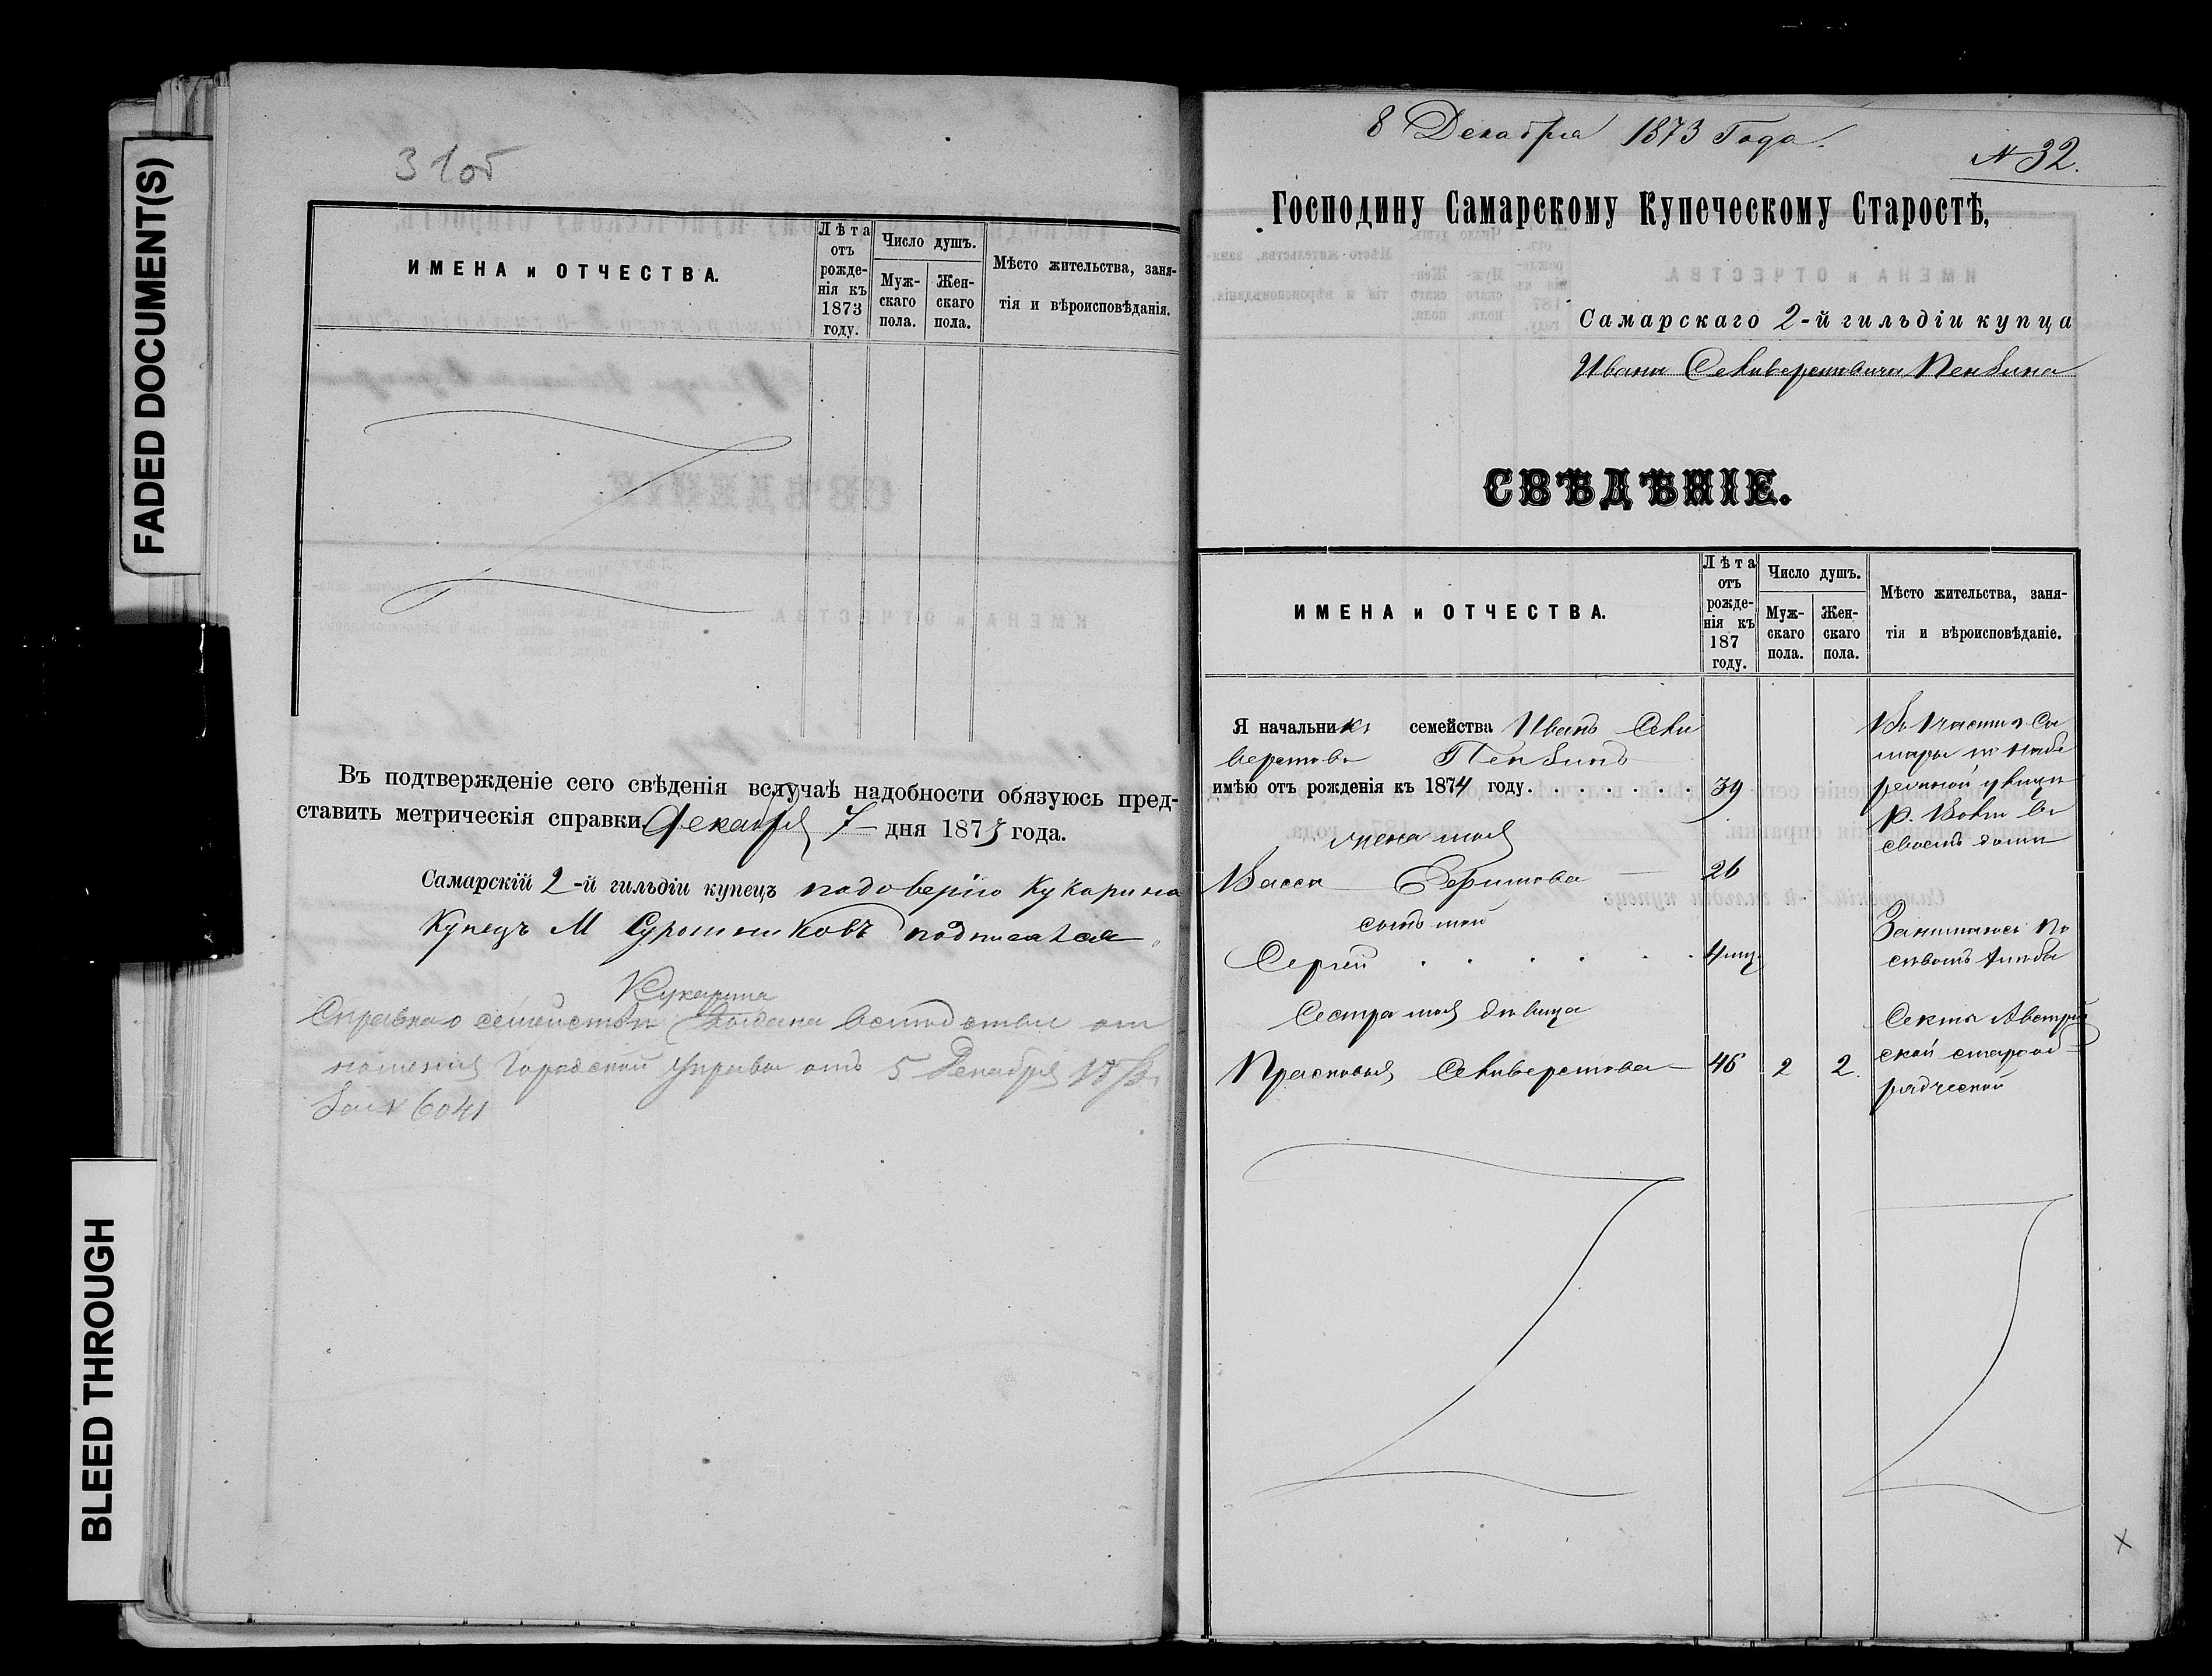 FADED DOCUMENT(S)
BLEED THROUGH
31об
ИМЕНА и ОТЧЕСТВА.
Лѣта отъ рожде-нія къ 1873 году.
Число душъ.
Муж-скаго пола.
Жен-скаго пола.
Мѣсто жительства, заня-
тія и вѣроисповѣданія.
Въ подтвержденіе сего свѣденія вслучаѣ надобности обязуюсь пред-
ставить метрическія справки. Декабря 7 дня 1873 года.
Самарскій 2-й гильдіи купецъ подоверію Кукарина
Купецъ М Сурошниковъ подписался
Кукарина
Справка о семействѣ
Городской Управы отъ 5 Декабря
за N 6041
8 Декабря 1873 Года.
N 32.
Господину Самарскому Купеческому Старостѣ,
Самарскаго 2-й гильдіи купца
Ивана Селиверстовича Пензина
СВѢДѢНІЕ.
ИМЕНА и ОТЧЕСТВА.
Лѣта отъ рожде-нія къ 187 году.
Число душъ.
Муж-скаго пола.
Жен-скаго пола.
Мѣсто жительства, заня-
тія и вѣроисповѣданіе.
Я начальникъ семейства Иванъ Сели
верстовъ Пензинъ
имѣю отъ рожденія къ 1874 году . . . . . . . 39
жена моя
Васса Ефимова 26
сынъ мой
Сергей . . . . . 4 мц.
Сестра моя дѣвица
Прасковья Селиверстова 46 2 2
Въ 1 части г. Са
мары по набе
режной улицѣ
р. Волги въ
своемъ домѣ
Занимаюсь по
сѣвомъ хлѣба
Секты Австрій
ской старооб-
рядческой